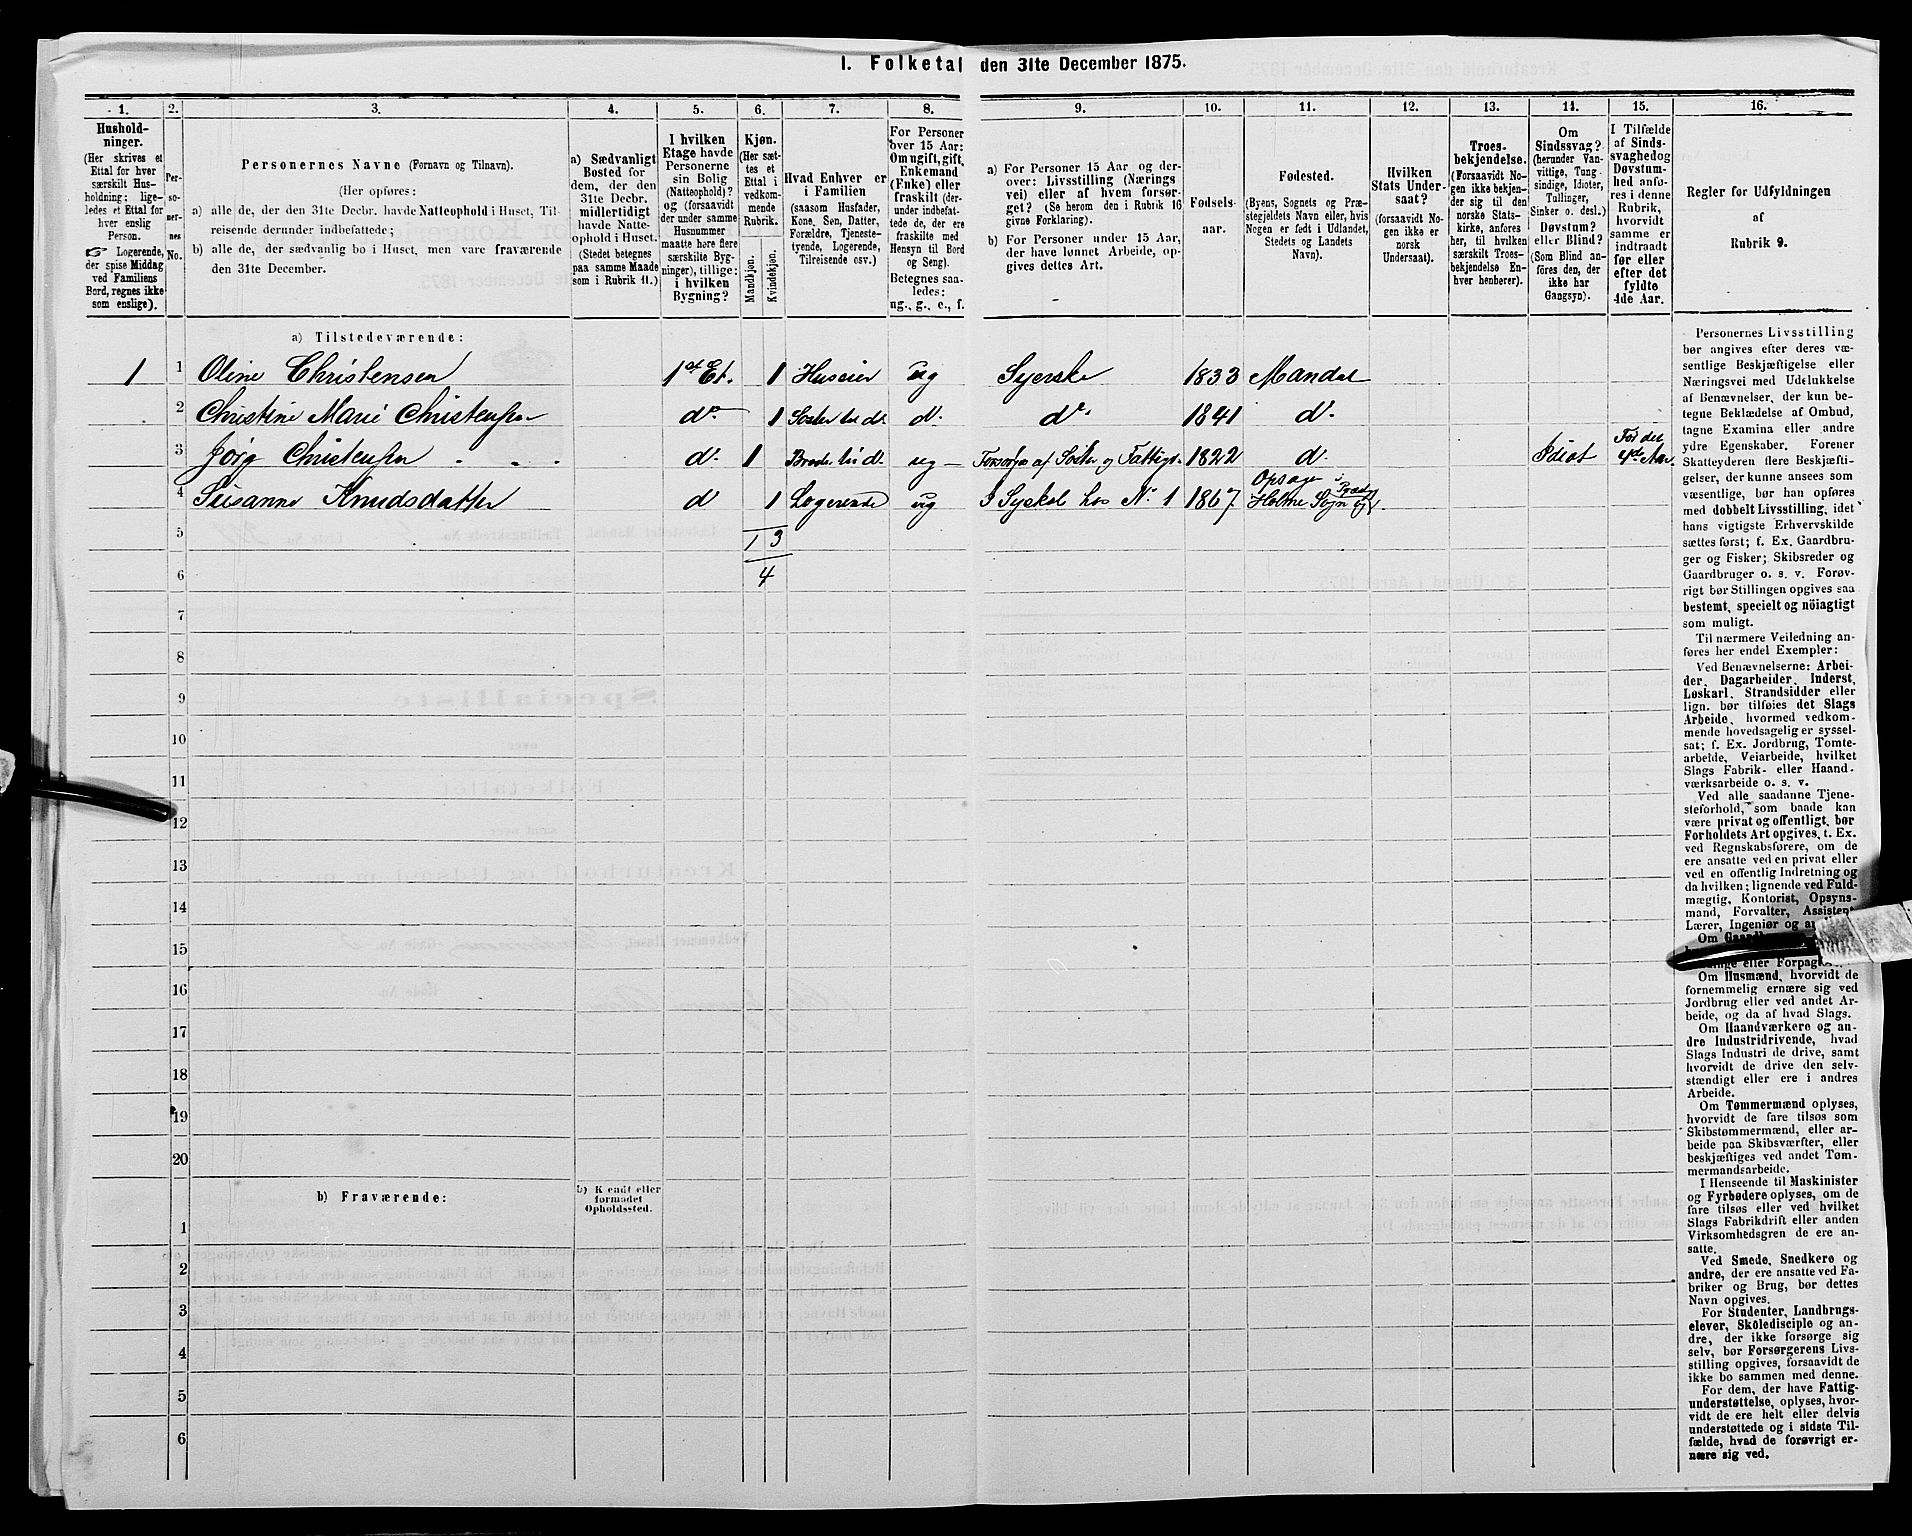 1. Folketal den 31te December 1875.
1.
2.
3.
4.
5.
6.
7.
8.
9.
10.
11.
12.
13.
14.
15.
16.
Hushold-
ninger.
(Her skrives et
Ettal for hver
særskilt Hus-
holdning; lige-
ledes et Ettal for
hver enslig
Person.
☞ Logerende,
der spise Middag
ved Familiens
Bord, regnes ikke
som enslige).
Per-
so-
ner-
nes
No.
Personernes Navne (Fornavn og Tilnavn).
(Her opføres:
a) alle de, der den 31te Decbr. havde Natteophold i Huset, Til-
reisende derunder indbefattede;
b) alle de, der sædvanlig bo i Huset, men vare fraværende
den 31te December.
a) Sædvanligt
Bosted for
dem, der den
31te Decbr.
midlertidigt
havde Natte-
ophold i Huset.
(Stedet betegnes
paa samme Maade
som i Rubrik 11.)
I hvilken
Etage havde
Personerne
sin Bolig
(Natteophold)?
og (forsaavidt
der under samme
Husnummer
maatte høre flere
særskilte Byg-
ninger), tillige:
i hvilken
Bygning?
Kjøn.
(Her sæt-
tes et
Ettal i
vedkom-
mende
Rubrik.
Mandkjøn.
Kvindekjøn.
Hvad Enhver er
i Familien
(saasom Husfader,
Kone, Søn, Datter,
Forældre, Tjeneste-
tyende, Logerende,
Tilreisende osv.)
For Personer
over 15 Aar:
Om ugift, gift,
Enkemand
(Enke) eller
fraskilt (der-
under indbefat-
tede de, der ere
fraskilte med
Hensyn til Bord
og Seng).
Betegnes saa-
ledes:
ug., g., e., f.
a) For Personer 15 Aar og der-
over: Livsstilling (Nærings
vei) eller af hvem forsør-
get? (Se herom den i Rubrik 16
givne Forklaring).
b) For Personer under 15 Aar,
der have lønnet Arbeide, op-
gives dettes Art.
Fødsels-
aar.
Fødested.
(Byens, Sognets og Præ-
stegjeldets Navn eller, hvis
Nogen er født i Udlandet,
Stedets og Landets
Navn).
Hvilken
Stats Under-
saat?
(forsaavidt No-
gen ikke er
norsk
Undersaat).
Troes-
bekjendelse.
(Forsaavidt No-
gen ikke bekjen-
der sig til den
norske Stats-
kirke, anføres
her, til hvilken
særskilt Troes-
bekjendelse En-
hver henhører).
Om
Sindssvag?
(herunder Van-
vittige, Tung-
sindige, Idioter,
Tullinger,
Sinker o. desl.)
Døvstum?
eller Blind?
(Som Blind an-
føres den, der
ikke har
Gangsyn).
I Tilfælde
af Sinds-
svaghed og
Døvstum-
hed anfø-
res i denne
Rubrik,
hvorvidt
samme er
indtraadt
før eller
efter det
fyldte
4de Aar.
Regler for Udfyldningen
af
Rubrik 9.
a) Tilstedeværende:
1 1 Oline Christensen 1ste Et. 1 Huseier ug Syerske 1833 Mandal
2 Christine Marie Christensen do 1 Søster til do do do 1841 do
3 Jörg Christensen do 1 Broder til do ug Forsørges af Søster og Fattigv. 1822 do Idiot Før det 4de Aar
4 Susanne Knudsdatter d 1 Logerende ug I Syskol hos No 1 1867 Holme Sogn
5 1 3
6 4
7
8
9
10
11
12
13
14
15
16
17
18
19
20
b) Fraværende:
b) Kjendt eller
formodet
Opholdssted.
1
2
3
4
5
6
Personernes Livsstilling
bør angives efter deres væ-
sentlige Beskjæftigelse eller
Næringsvei med Udelukkelse
af Benævnelser, der kun be-
tegne Beklædelse af Ombud,
tagne Examina eller andre
ydre Egenskaber. Forener
Skatteyderen flere Beskjæfti-
gelser, der kunne ansees som
væsentlige, bør han opføres
med dobbelt Livsstilling, idet
hans vigtigste Erhvervskilde
sættes først; f. Ex. Gaardbru-
ger og Fisker; Skibsreder og
Gaardbruger o. s. v. Forøv-
rigt bør Stillingen opgives saa
bestemt, specielt og nöiagtigt
som muligt.
Til nærmere Veiledning an-
føres her endel Exempler:
Ved Benævnelserne: Arbei-
der, Dagarbeider, Inderst,
Løskarl, Strandsidder eller
lign. bør tilføies det Slags
Arbeide, hvormed vedkom-
mende hovedsagelig er syssel-
sat; f. Ex. Jordbrug, Tomte-
arbeide, Veiarbeide, hvilket
Slags Fabrik- eller Haand-
værksarbeide o. s. v.
Ved alle saadanne Tjene-
steforhold, som baade kan
være privat og offentligt, bør
Forholdets Art opgives, t. Ex.
ved Regnskabsførere, om de
ere ansatte ved en privat eller
ved en offentlig Indretning og
da hvilken; lignende ved Fuld-
mægtig, Kontorist, Opsyns-
mand, Forvalter, Assistent,
Lærer, Ingeniør og
Om
eller
Om Husmænd, hvorvidt de
fornemmelig ernære sig ved
Jordbrug eller ved andet Ar-
beide, og da af hvad Slags.
Om Haandværkere og an-
dre Industridrivende, hvad
Slags Industri de drive, samt
hvorvidt de drive den selv-
stændigt eller ere i andres
Arbeide.
Om Tømmermænd oplyses,
hvorvidt de fare tilsøs som
Skibstømmermænd, eller ar-
beide paa Skibsværfter, eller
beskjæftiges ved andet Tøm-
mermandsarbeide.
I Henseende til Maskinister
og Fyrbødere oplyses, om de
fare tilsøs eller ved hvilket
Slags Fabrikdrift eller anden
Virksomhedsgren de ere an-
satte.
Ved Smede, Snedkere og
andre, der ere ansatte ved Fa-
briker og Brug, bør dettes
Navn opgives.
For Studenter, Landbrugs-
elever, Skoledisciple og an-
dre, der ikke forsørge sig
selv, bør Forsørgerens Livs-
stilling opgives, forsaavidt de
ikke bo sammen med denne.
For dem, der have Fattig-
understøttelse, oplyses, hvor-
vidt de ere helt eller delvis
understøttede og i sidste Til-
fælde, hvad de forøvrigt er-
nære sig ved.